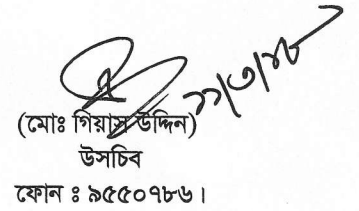 ১১/৩/১৮
(মোঃ গিয়াস উদ্দিন)
উসচিব
ফোন ঃ ৯৫৫০৭৮৬।